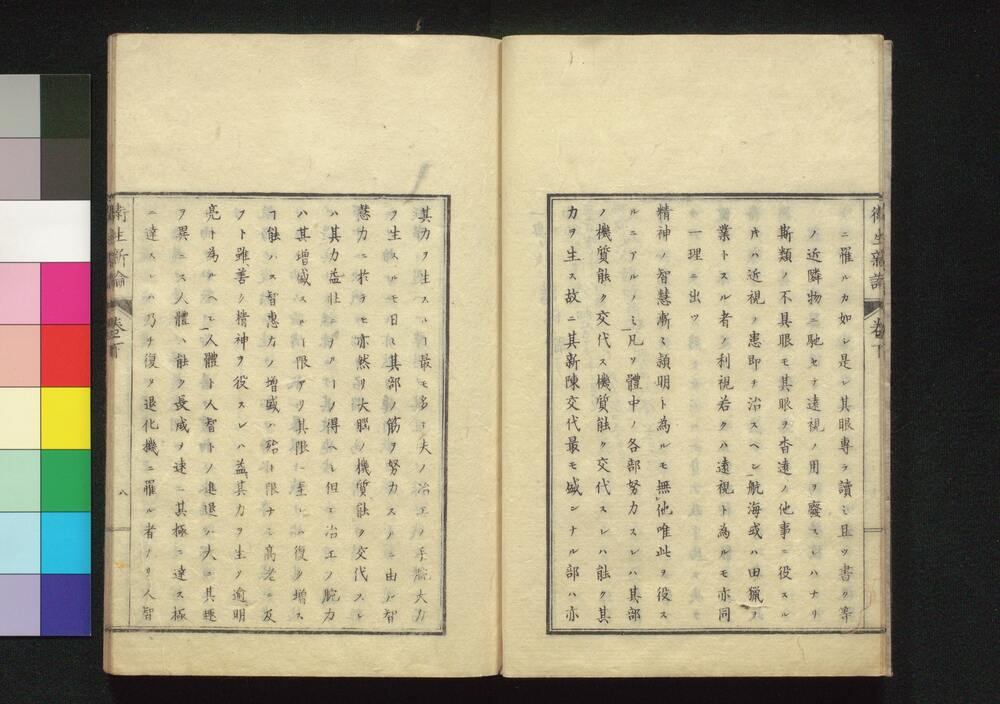 ニ罹ルカ如シ是レ其眼専ラ讀ミ且ツ書ク等
ノ近隣物ニ馳セテ遠視ノ用ヲ廢スレハナリ
斯類ノ不具眼モ其眼ヲ杳遠ノ他事ニ役スル
片ハ近視ノ患即チ治スヘシ航海或ハ田獵ヲ
業トスル者ノ利視若クハ遠視ト為ルモ亦同
ク一理ニ出ツ
精神ノ智慧漸ミ穎明ト為ルモ無他唯此ヲ役ス
ルニアルノミ凡ソ體中ノ各部努力スレハ其部
ノ機質能ク交代ス機質能ク交代スレハ能ク其
力ヲ生ス故ニ其新陳交代最モ盛ンナル部ハ亦
其力ヲ生スルヿ最モ多シ夫ノ冶工ノ手腕大力
ヲ生スルモ日ミ其部ノ筋ヲ努力スルニ由ル智
慧力ニ於テモ亦然リ大脳ノ機質能ク交代スレ
ハ其力益壯ナルヿヲ得ヘシ但シ冶工ノ腕力
ハ其増盛スルヿ限アリ其限ニ至レハ復タ増ス
ヿ能ハス智恵力ノ増盛ハ殆ト限ナシ高老ニ及
フト雖善ク精神ヲ役スレハ益其力ヲ生シ逾明
亮ト為ルヘシ人體ト人智トノ進退ハ大ニ其趣
ヲ異ニス人體ハ能ク長成ヲ速ニ其極ニ達ス極
ニ達スレハ乃チ復タ退化機ニ罹ル者ナリ人智
衛生新論
卷下
八